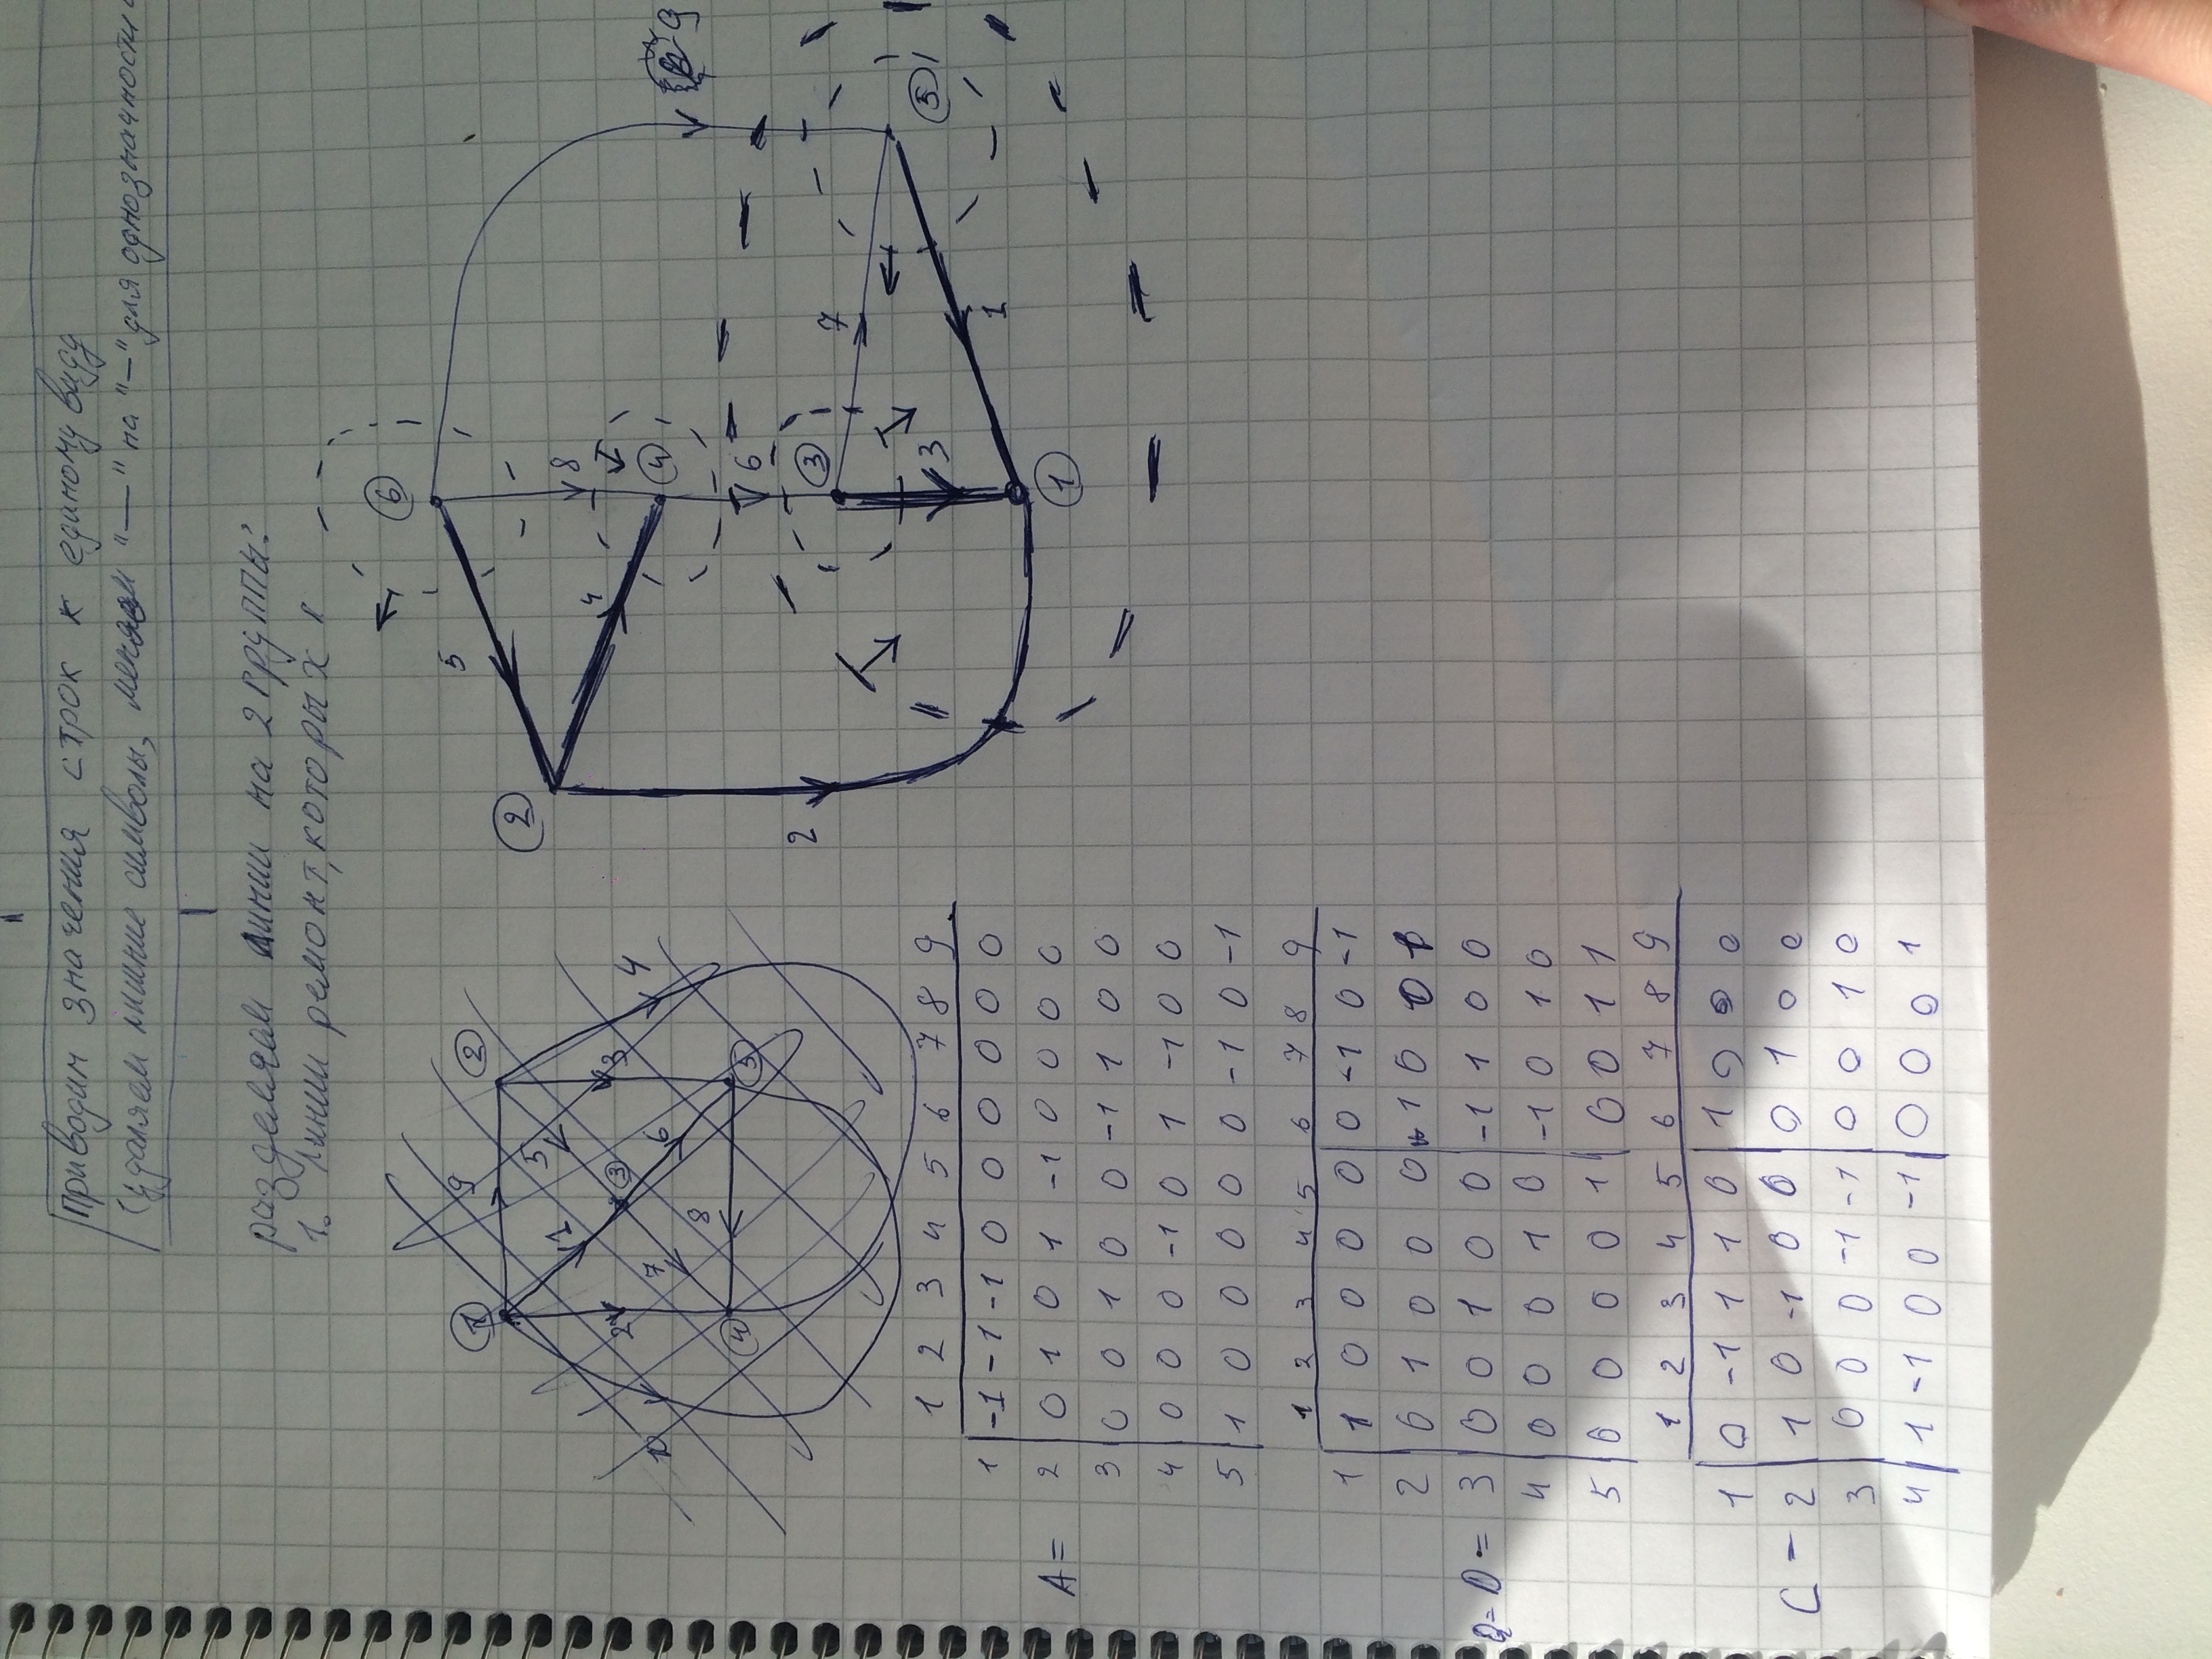 приводим значения строк к единому виду
(удаляем лишние символы, меняем "—" на "-" для однозначности
разделяем линии на 2 группы:
1. Линии ремонт, которых п
1 9 2
5
1
2 3 4
10 7 3 6
8
4 5
6
5
2
8
4
4
9
6
2 3
7
3
5
1
1
1 2 3 4 5 6 7 8 9
1 -1 -1 -1 0 0 0 0 0 0
A= 2 0 1 0 1 -1 0 0 0 0
3 0 0 1 0 0 -1 1 0 0
4 0 0 0 -1 0 1 -1 0 0
5 1 0 0 0 0 0 -1 0 -1
1 2 3 4 5 6 7 8 9
1 1 0 0 0 0 0 -1 0 -1
2 0 1 0 0 0 1 0 0 1
Q= D= 3 0 0 1 0 0 -1 1 0 0
4 0 0 0 1 0 -1 0 1 0
5 0 0 0 0 1 0 0 1 1
1 2 3 4 5 6 7 8 9
1 0 -1 1 1 0 1 0 0 0
C - 2 1 0 -1 0 0 0 1 0 0
3 0 0 0 -1 -1 0 0 1 0
4 1 -1 0 0 -1 0 0 0 1